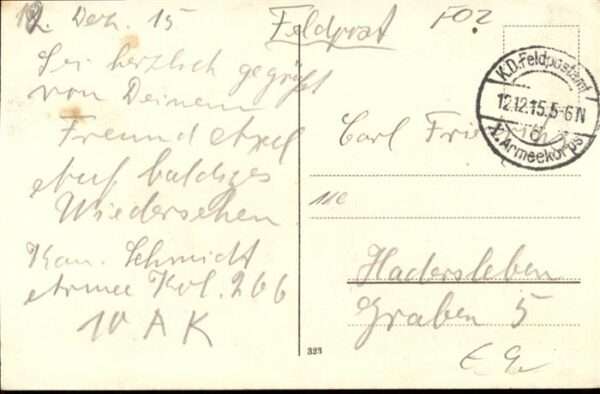 12. Dez. 15
Feldpost
Sei herzlich gegrüßt
von Deinem
Freund
Auf baldiges
Wiedersehen
Kan. Schmidt
Armee Kol. 266
10 A K
Carl
Hadersleben
Graben 5
K.D. Feldpostamt
12.12.15. 5-6 N
X. Armeekorps
323